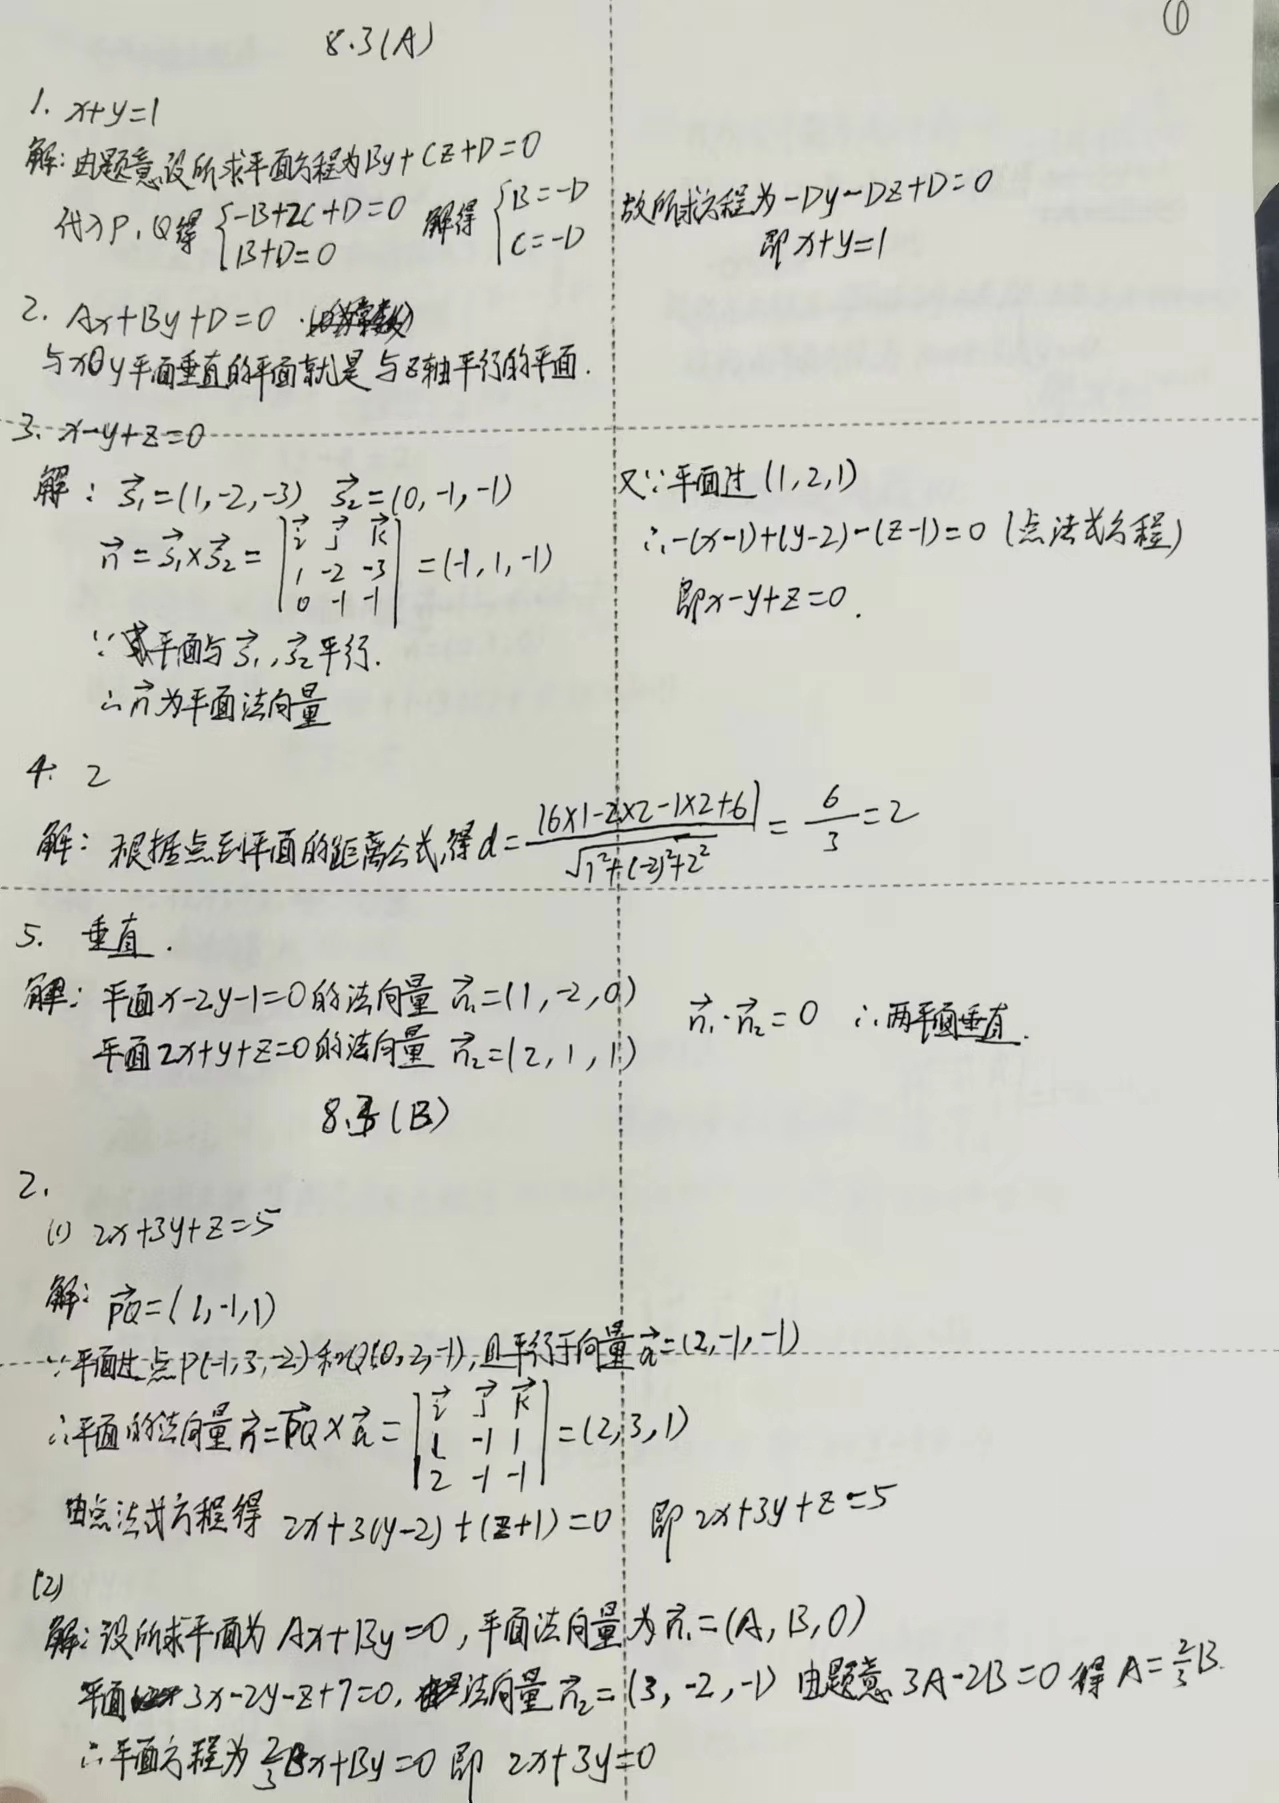 ①
8.3(A)
1. x+y=1
解:由题意,设所求平面方程为By+Cz+D=0
代入P,Q得 {-B+2C+D=0 B+D=0 解得 {B=-D C=-D 故所求方程为-Dy-Dz+D=0
即x+y=1
2. Ax+By+D=0
与xOy平面垂直的平面就是与z轴平行的平面.
3. x-y+z=0
解: s⃗₁=(1,-2,-3) s⃗₂=(0,-1,-1)
n⃗=s⃗₁×s⃗₂=|i⃗ j⃗ k⃗; 1 -2 -3; 0 -1 -1|=(-1,1,-1)
∵平面与s⃗₁,s⃗₂平行.
∴n⃗为平面法向量
又∵平面过(1,2,1)
∴-(x-1)+(y-2)-(z-1)=0 (点法式方程)
即x-y+z=0.
4. 2
解: 根据点到平面的距离公式,得d=|6×1-2×2-1×2+6|/√(1²+(-2)²+2²)=6/3=2
5. 垂直.
解: 平面x-2y-1=0的法向量 n⃗₁=(1,-2,0)
平面2x+y+z=0的法向量 n⃗₂=(2,1,1)
n⃗₁·n⃗₂=0 ∴两平面垂直.
8.3(B)
2.
(1) 2x+3y+z=5
解: PQ⃗=(1,-1,1)
∵平面过点P(-1,3,-2)和Q(0,2,-1),且平行于向量a⃗=(2,-1,-1)
∴平面的法向量n⃗=PQ⃗×a⃗=|i⃗ j⃗ k⃗; 1 -1 1; 2 -1 -1|=(2,3,1)
由点法式方程得 2x+3(y-2)+(z+1)=0 即 2x+3y+z=5
(2)
解: 设所求平面为Ax+By=0,平面法向量为n⃗₁=(A,B,0)
平面3x-2y-z+7=0,法向量n⃗₂=(3,-2,-1) 由题意,3A-2B=0得A=2/3B.
∴平面方程为2/3Bx+By=0 即 2x+3y=0